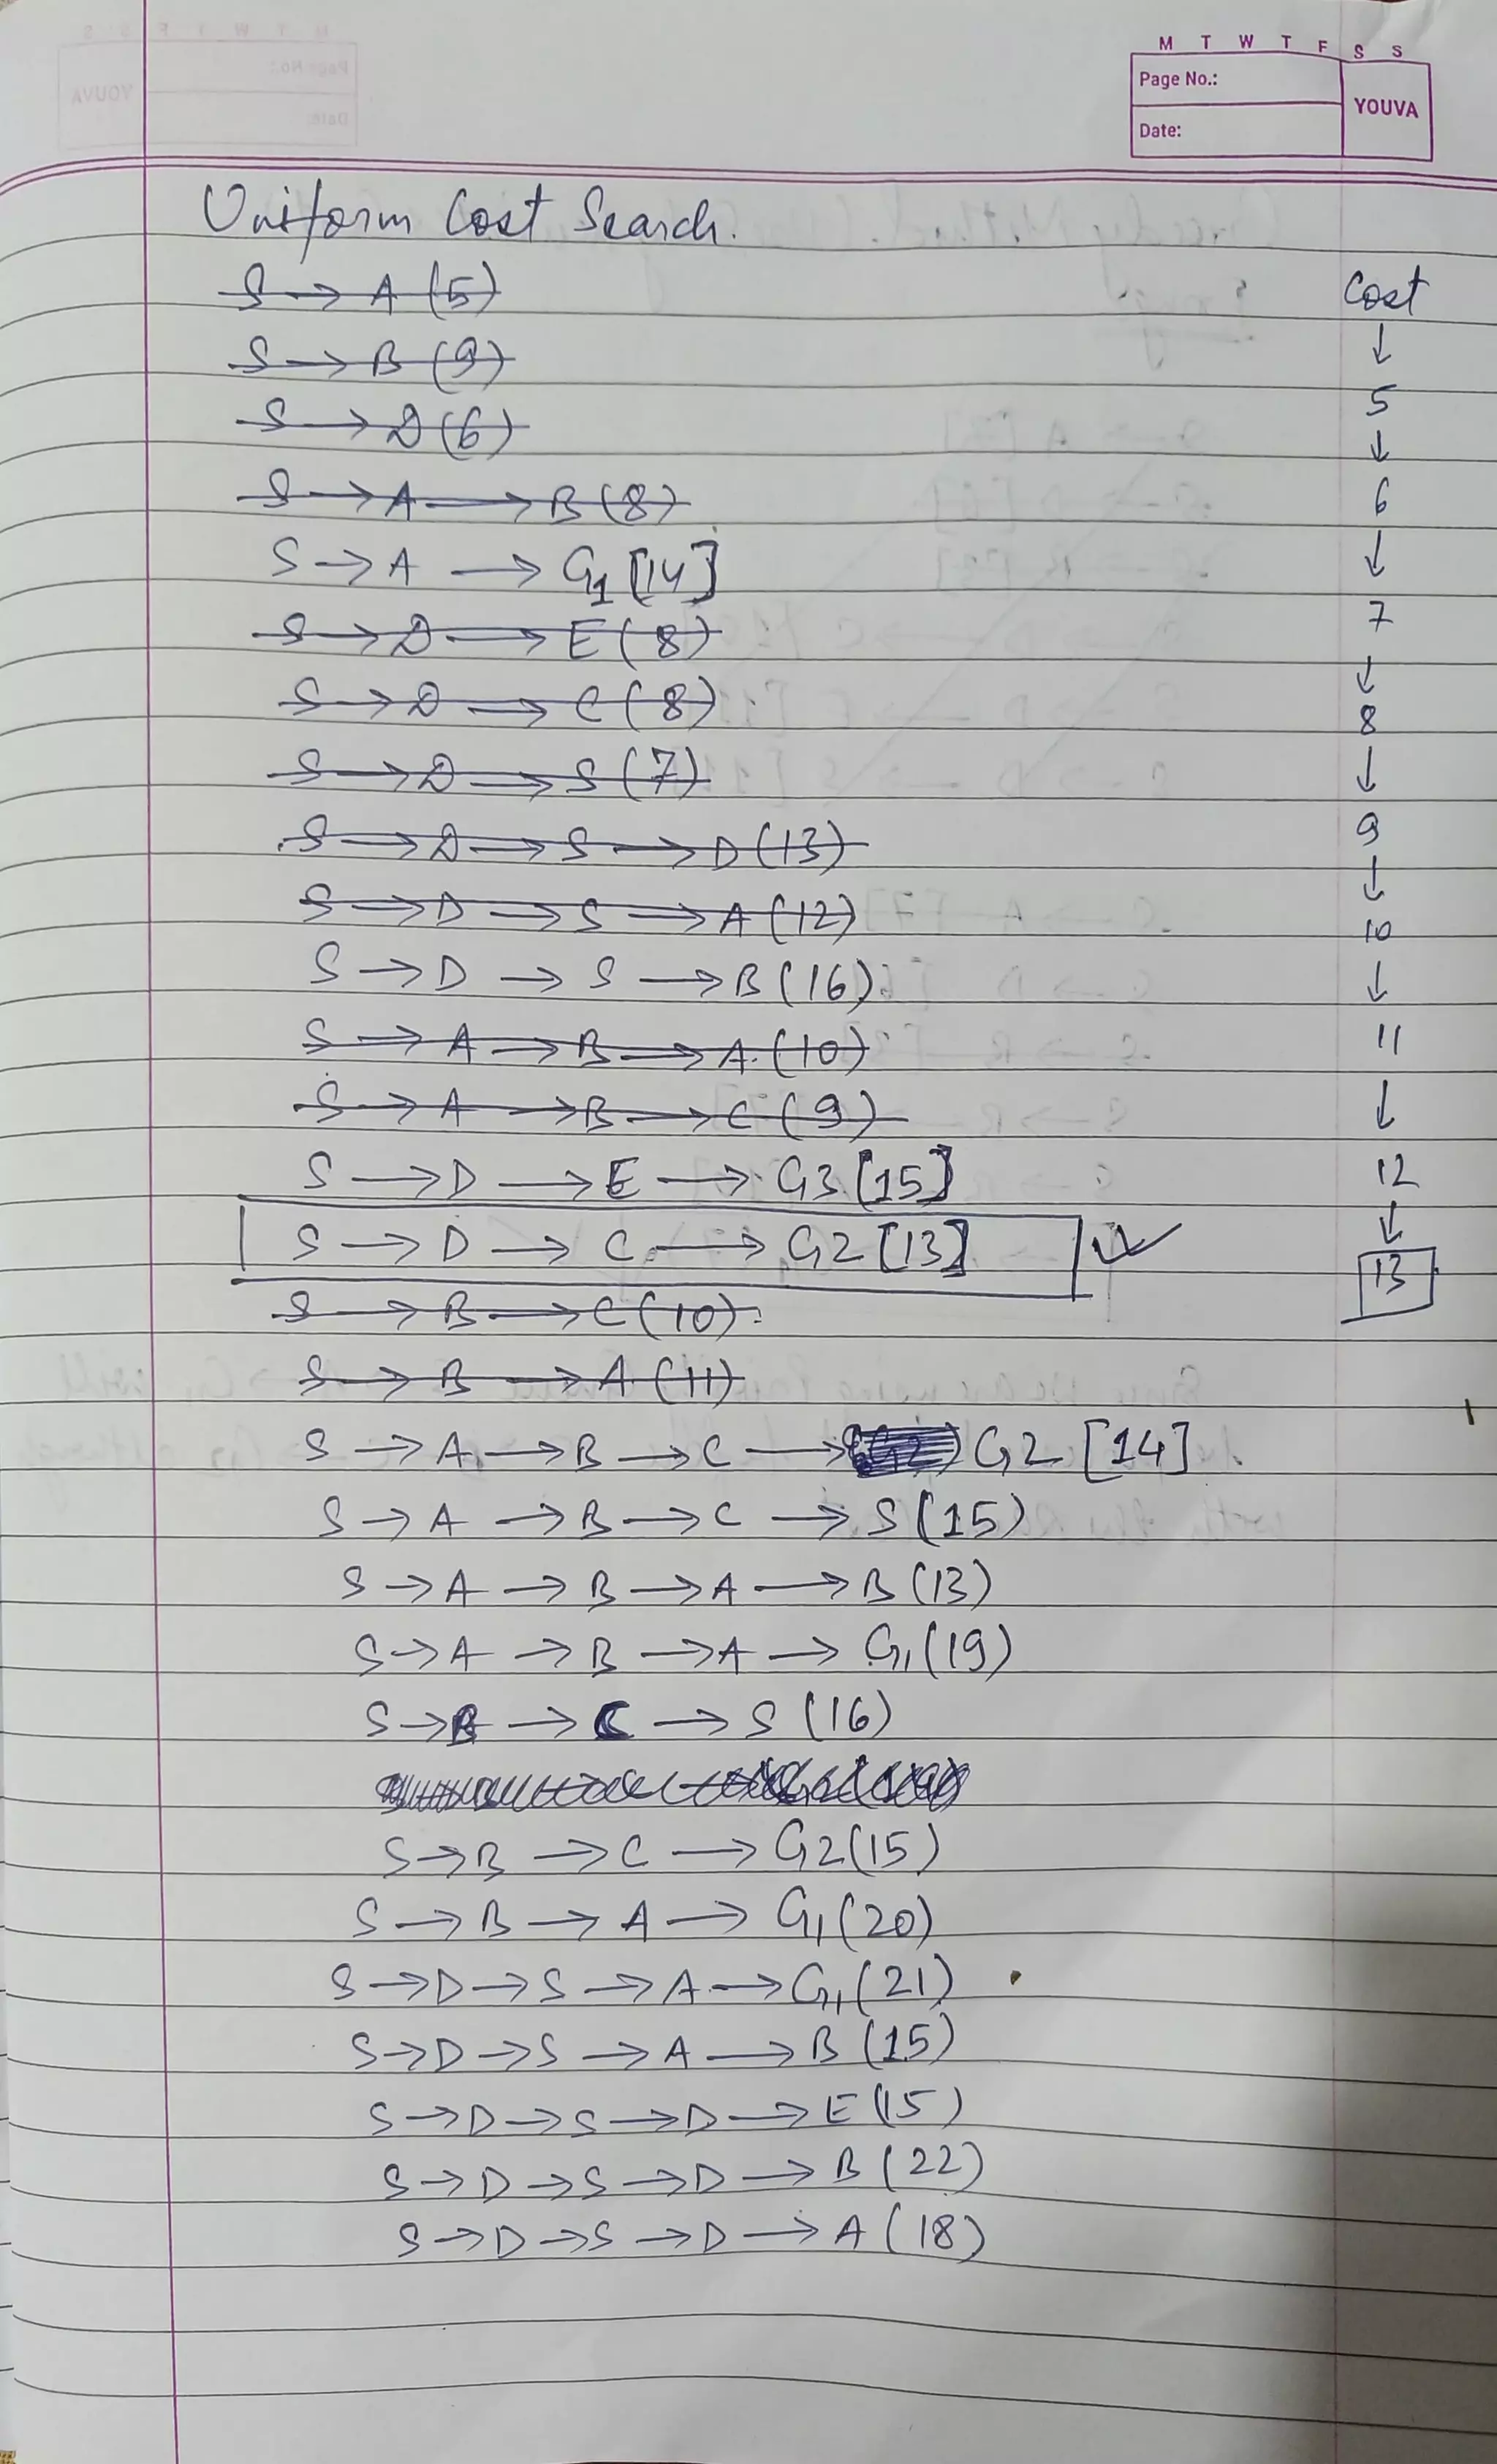 M T W T F S S
Page No.:
YOUVA
Date:
Uniform Cost Search.
S → A (5)
S → B (9)
S → D (6)
S → A → B (8)
S → A → G1 [14]
S → D → E (8)
S → D → C (8)
S → D → S (7)
S → D → S → D (13)
S → D → S → A (12)
S → D → S → B (16)
S → A → B → A (10)
S → A → B → C (9)
S → D → E → G3 [15]
S → D → C → G2 [13]
S → B → C (10)
S → B → A (11)
S → A → B → C → G2 [14]
S → A → B → C → S (15)
S → A → B → A → B (13)
S → A → B → A → G1 (19)
S → B → C → S (16)
S → B → C → G2 (15)
S → B → A → G1 (20)
S → D → S → A → G1 (21)
S → D → S → A → B (15)
S → D → S → D → E (15)
S → D → S → D → B (22)
S → D → S → D → A (18)
Cost
↓
5
↓
6
↓
7
↓
8
↓
9
↓
10
↓
11
↓
12
↓
13